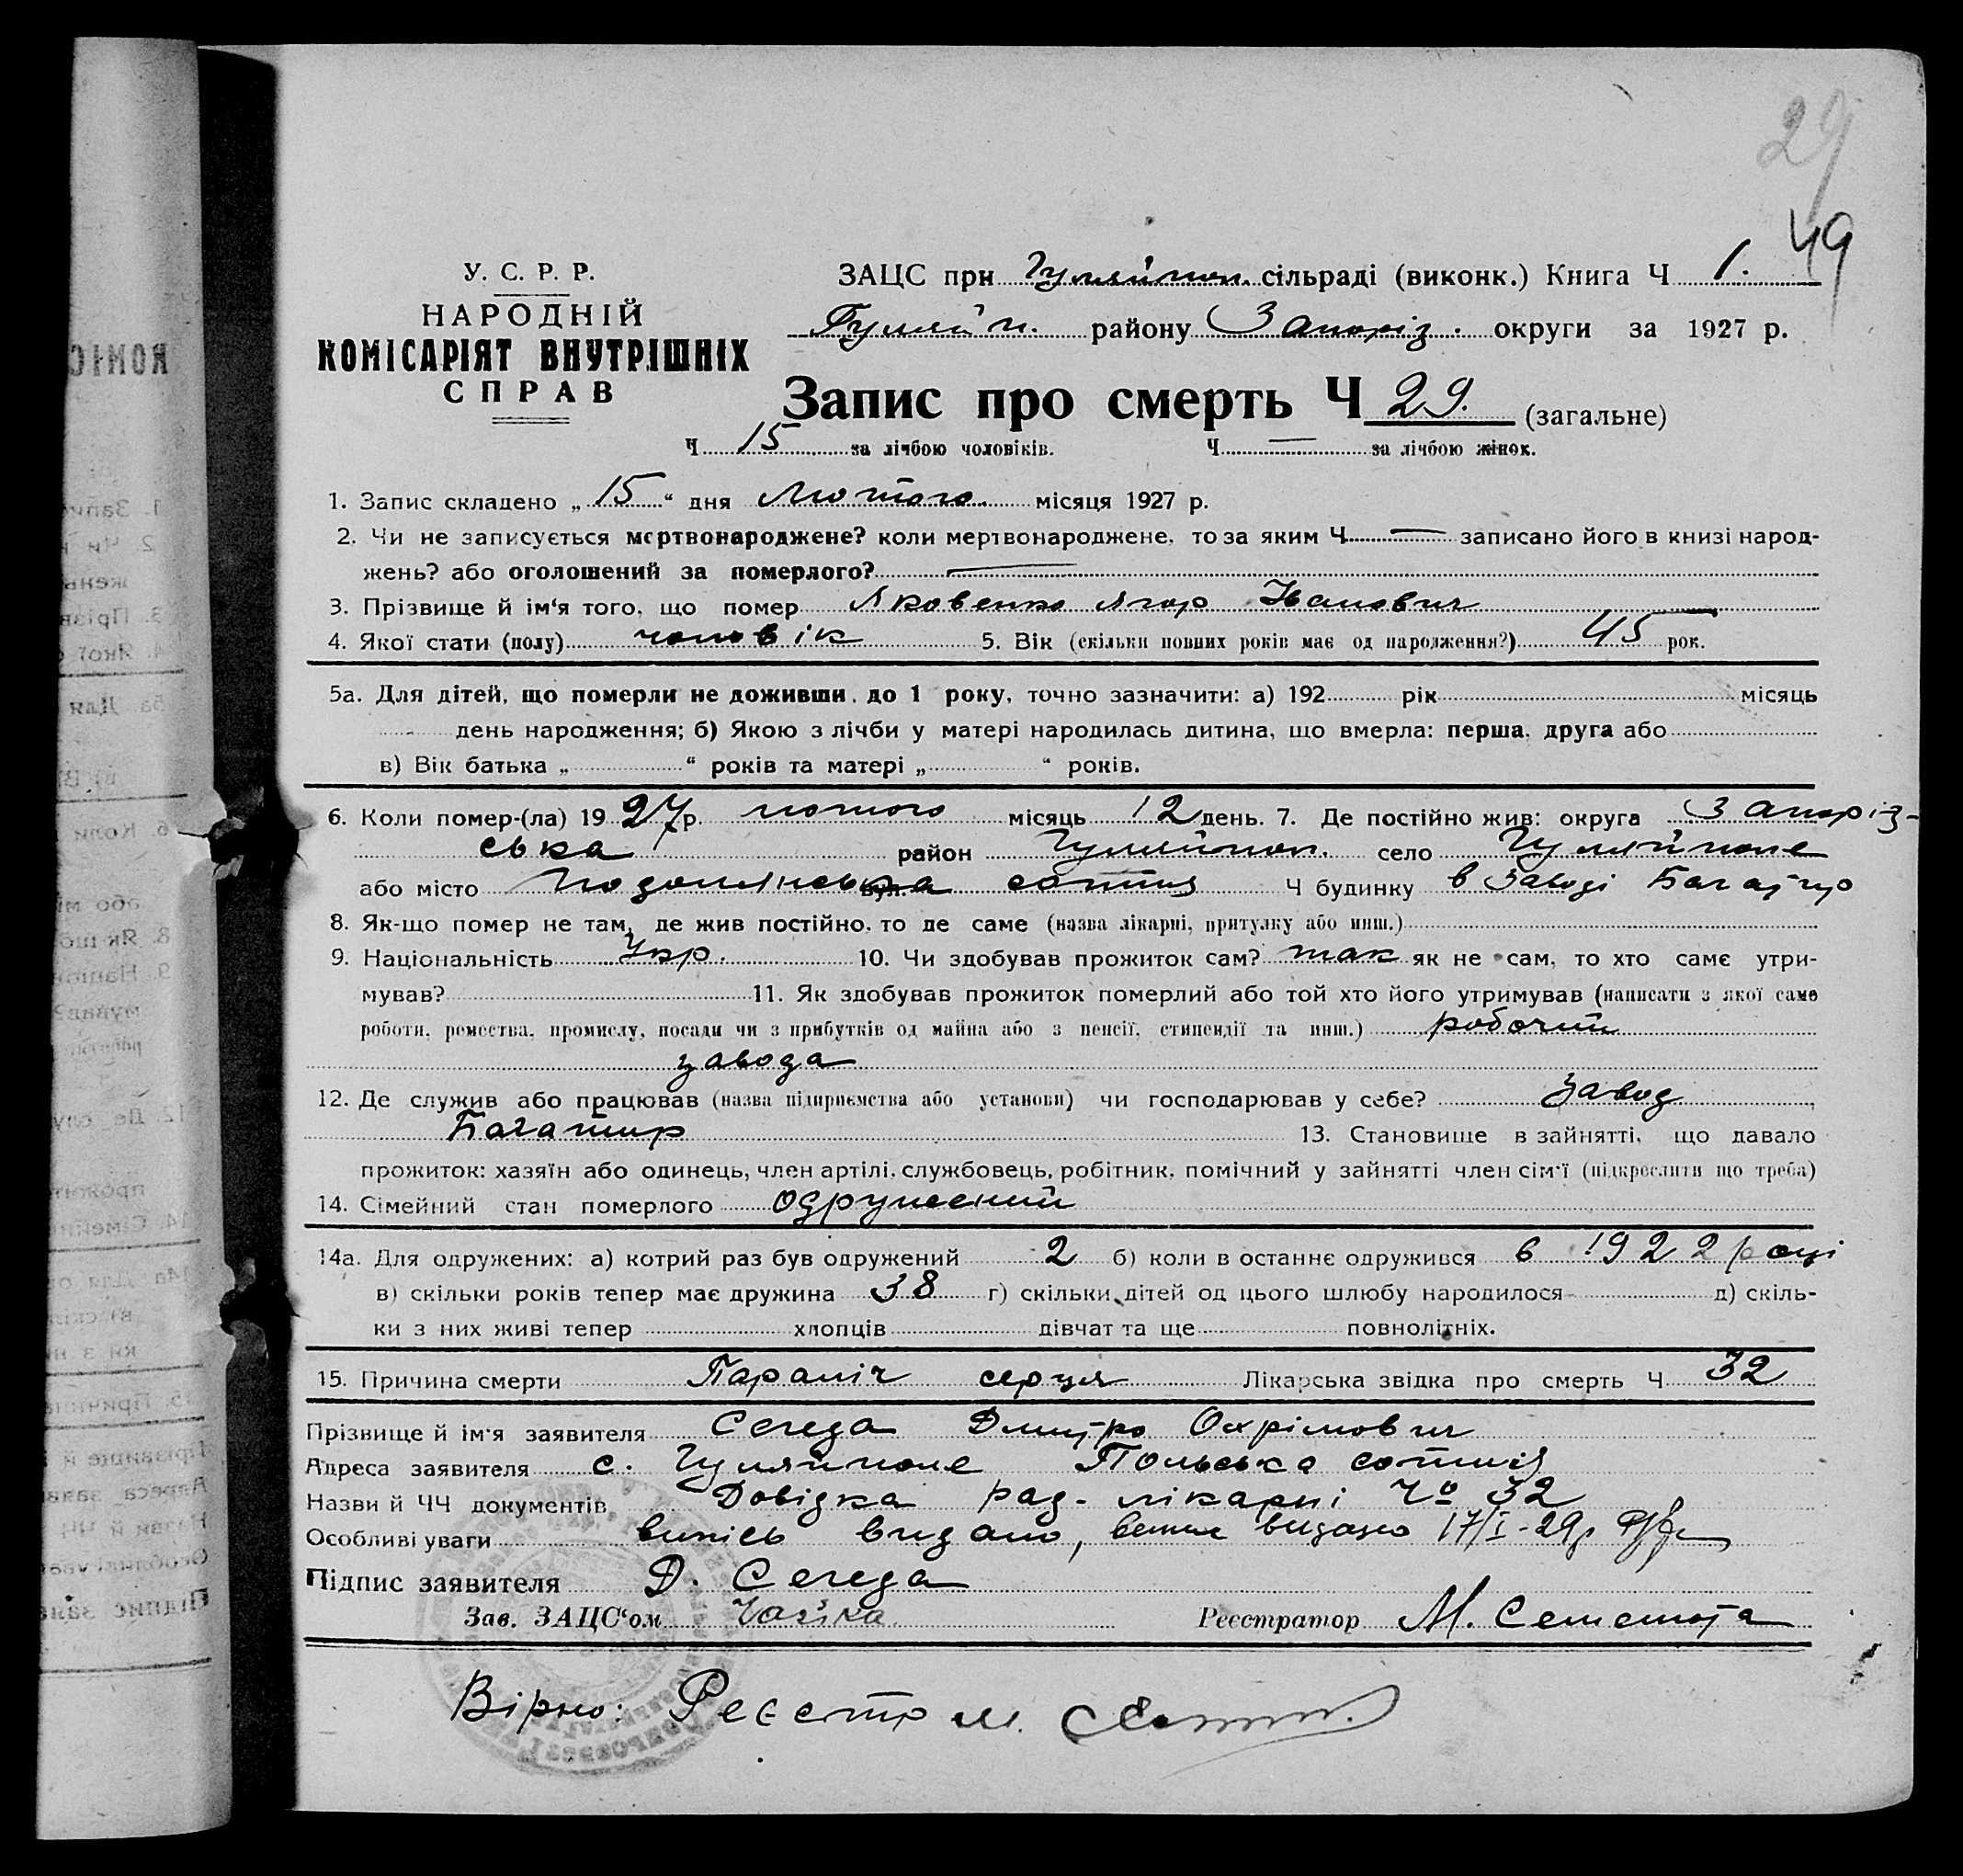 29
49
У. С. Р. Р.
НАРОДНІЙ
КОМІСАРІЯТ ВНУТРІШНІХ
СПРАВ
ЗАЦС при Гуляйпол. сільраді (виконк.) Книга Ч 1.
Гуляйп. району Запоріз. округи за 1927 р.
Запис про смерть Ч 29. (загальне)
Ч 15 за лічбою чоловіків. Ч — за лічбою жінок.
1. Запис складено „ 15 “ дня Лютого місяця 1927 р.
2. Чи не записується мертвонароджене? коли мертвонароджене, то за яким Ч — записано його в книзі народ-
жень? або оголошений за померлого? —
3. Прізвище й ім‘я того, що помер Яковенко Ягор Іванович
4. Якої стати (полу) чоловік 5. Вік (скільки повних років має од народження?) 45 рок.
5а. Для дітей, що померли не доживши, до 1 року, точно зазначити: а) 192 рік місяць
день народження; б) Якою з лічби у матері народилась дитина, що вмерла: перша, друга або
в) Вік батька „ “ років та матері „ “ років.
6. Коли помер-(ла) 19 27 р. лютого місяць 12 день. 7. Де постійно жив: округа Запоріз-
ська район Гуляйпол. село Гуляйполе
або місто вул. сотня Ч будинку в заводі
8. Як-що помер не там, де жив постійно, то де саме (назва лікарні, притулку або инш.)
9. Національність Укр. 10. Чи здобував прожиток сам? так як не сам, то хто саме утри-
мував? 11. Як здобував прожиток померлий або той хто його утримував (написати з якої саме
роботи, ремества, промислу, посади чи з прибутків од майна або з пенсії, стипендії та инш.) робочий
завода
12. Де служив або працював (назва підприємства або установи) чи господарював у себе? Завод
Багатир 13. Становище в зайнятті, що давало
прожиток: хазяїн або одинець, член артілі, службовець, робітник, помічний у зайнятті член сім‘ї (підкреслити що треба)
14. Сімейний стан померлого одружений
14а. Для одружених: а) котрий раз був одружений 2 б) коли в останнє одружився в 1922 році
в) скільки років тепер має дружина 38 г) скільки дітей од цього шлюбу народилося д) скіль-
ки з них живі тепер хлопців дівчат та ще повнолітніх.
15. Причина смерти Параліч серця Лікарська звідка про смерть Ч 32
Прізвище й ім‘я заявителя Середа Дмитро Охрімович
Адреса заявителя с. Гуляйполе Польська сотня
Назви й ЧЧ документів Довідка рад. лікарні Чо 32
Особливі уваги випісь видано, видано 17/I-29р
Підпис заявителя Д. Середа
Зав. ЗАЦС‘ом Чайка Реєстратор М.
Вірно: Реєстр М.